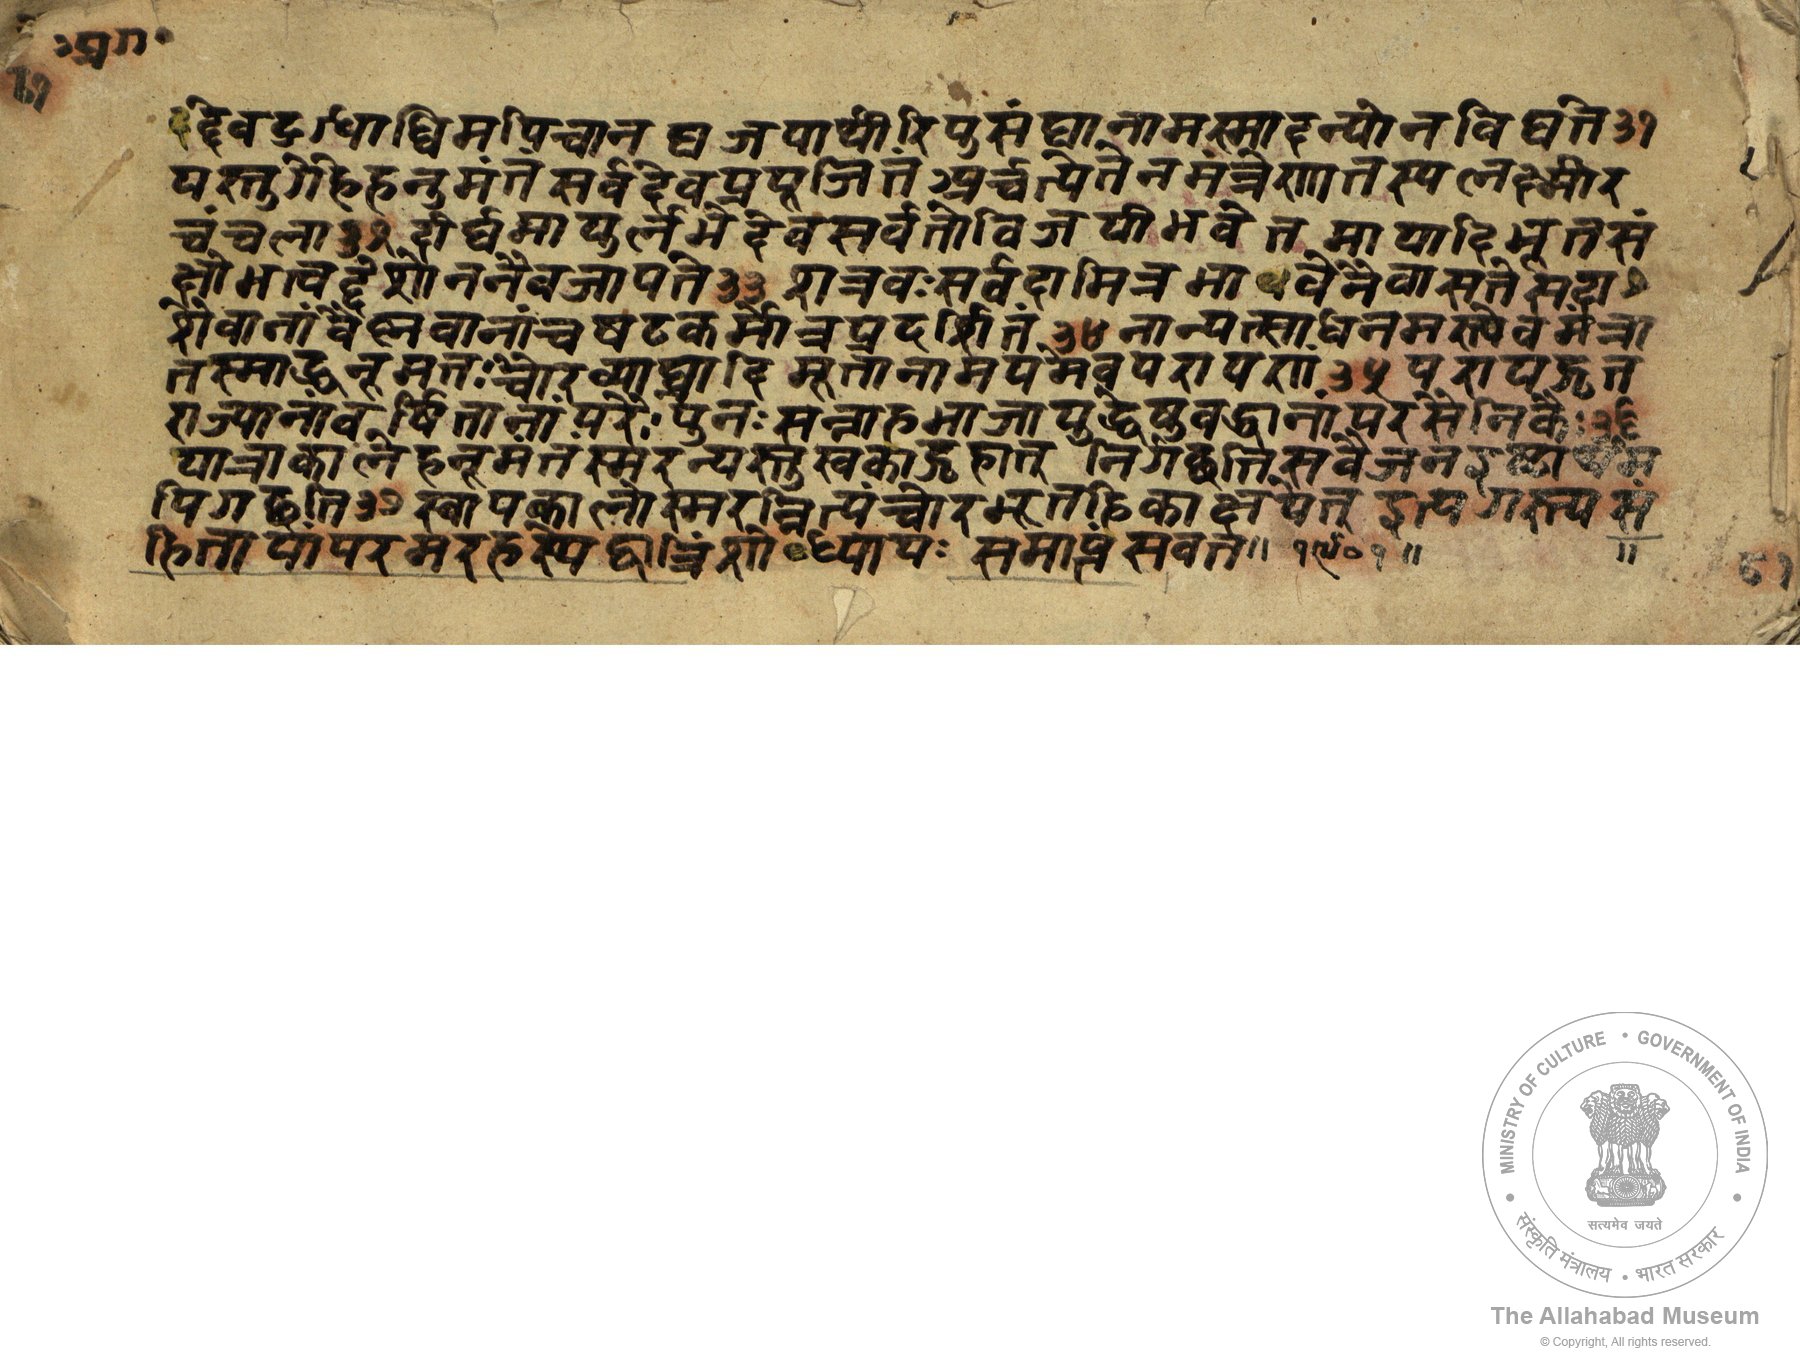 अग॰
६१
देवद्रग्धाघ्विमपिचानघ जपाथीरिपुसंघानामस्मादन्योनविद्यते ३१
यस्तुगेहेहनुमंतं सर्वदेवप्रपूजितं अर्चत्येतेनमंत्रेणातस्यलक्ष्मीर
चंचला ३२ दीर्घमायुर्लभेदेवसर्वतोविजयीभवेत मायादिभूतसं
नैवजायते ३३ शत्रवःसर्वदामित्रमा वेनैवासतेसदा
शैवानांवैष्नवानांच षटकर्मात्रप्रदर्शितं ३४ नान्यत्साधनमस्त्येवमंत्रा
तस्माद्धनूमतः चोरव्याघ्रादि भूतानामयमेवपरायणां ३५ परायङ्गत
राज्यानांवर्षितानांपरैः पुनः सन्नाहभाजायुद्धेषुवद्धानांपरसैनिकैः ३६
यात्राकालेहनूमंतंस्मरन्यस्तुस्वकाङ्गहात् निर्गछतिसवैजन इष्टा म
पिगछति ३७ स्वापकालोस्मरन्नित्यंचोरभूतहिकाक्षयेत् इत्यगस्त्यसं
हितायांपरमरहस्येद्वात्रिंशोध्यायः समाप्तंसवत॥ १९०१॥ ॥
६१
MINISTRY OF CULTURE • GOVERNMENT OF INDIA
सत्यमेव जयते
संस्कृति मंत्रालय • भारत सरकार
The Allahabad Museum
© Copyright, All rights reserved.